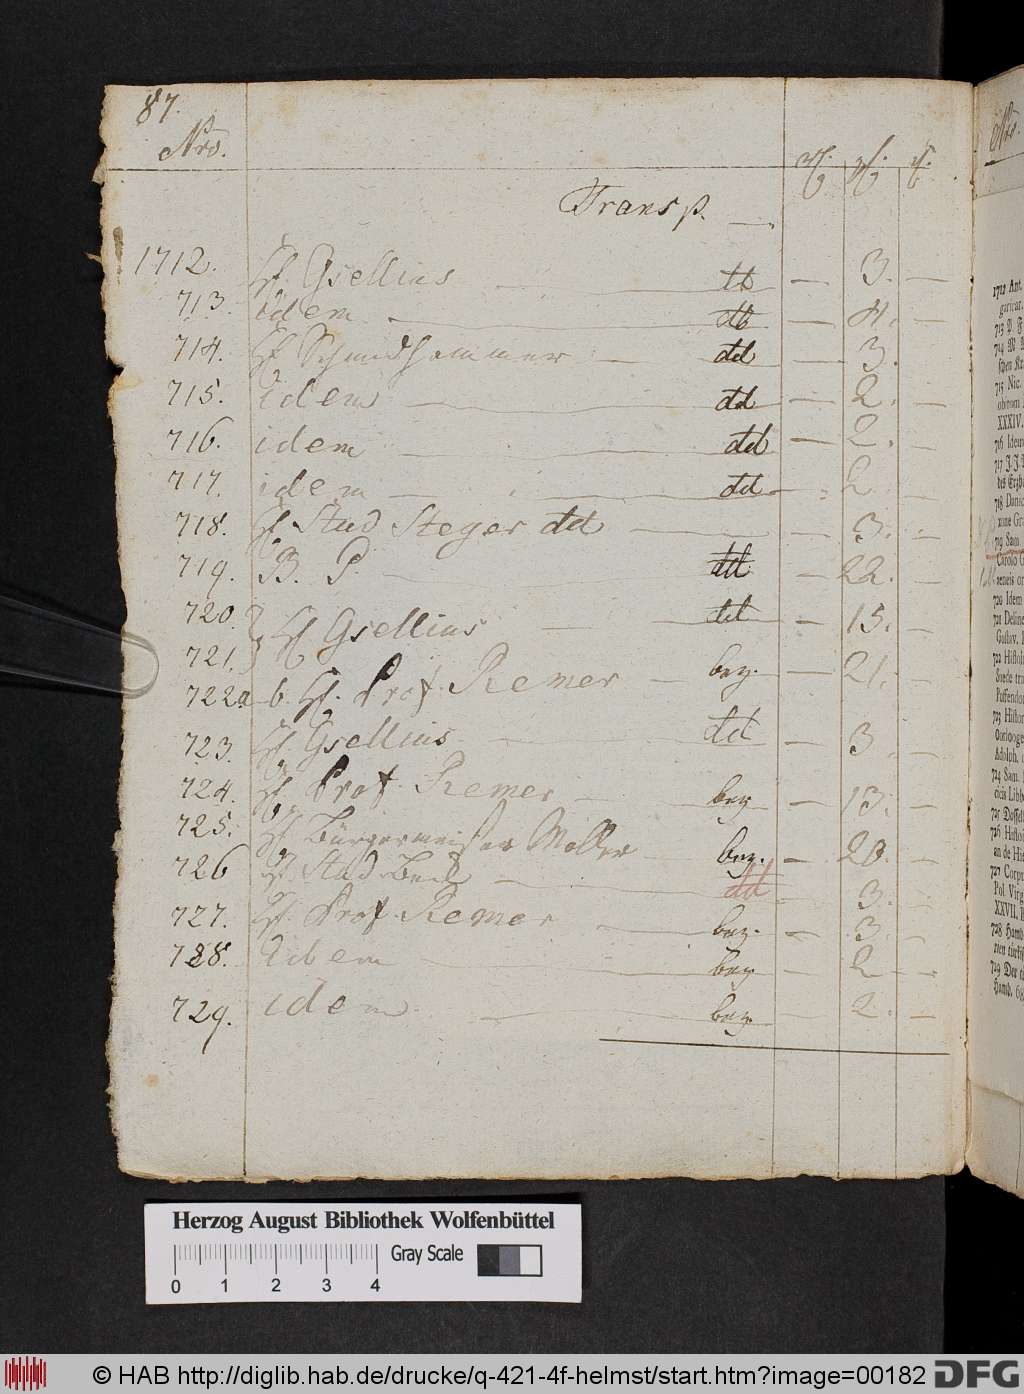 87.
Nro.
Transp. —
1712. H. Gsellius — dd — 3. —
713. idem — dd — 4. —
714. H. Schmidhammer — dd — 3. —
715. idem — dd — 2. —
716. idem — dd — 2. —
717. idem — dd — 2 —
718. H. Stud Steger dd — 3. —
719. B. P. — dd — 22. —
720.
721. } H. Gsellius — dd — 15. —
722 a-b. H. Prof. Remer — bez. — 21. —
723. H. Gsellius — dd — 3 —
724. H. Prof. Remer — bez — 13. —
725. H. Bürgermeister Moller bez. — 20. —
726 H. Stud — dd — 3. —
727. H. Prof. Remer — bez. — 3. —
728. idem — bez — 2 —
729. idem — bez. — 2. —
1712 Ant.
713 P. F
714 M.
715 Nic.
XXXIV.
716 Idem
717 J. J.
des Erzb
718 Danic
719 Sam.
Carolo G
720 Idem
Gustav.
722 Histor
Suede tri
Puffendo
723 Histor
Adolph.
724 Sam.
726 Histo
an de Hie
727 Corpu
Pol. Virg
XXVII.
728 Hamb.
729 Der
Hamb. 68
Herzog August Bibliothek Wolfenbüttel
Gray Scale
0 1 2 3 4
© HAB http://diglib.hab.de/drucke/q-421-4f-helmst/start.htm?image=00182
DFG